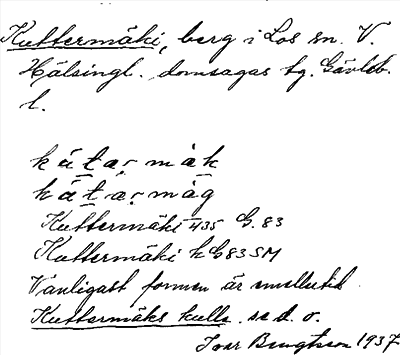 Kuttermäki, berg i Los sn. V.
Hälsingl. domsagas tg. Gävleb.
l.
kátạrmàk
hátạrmàg
Kuttermäki 435 G. 83
Kuttermäki h G83SM
Vanligast formen är emellertid
Kuttermäks kulle se d. o.
Ivar Bengtsson 1937